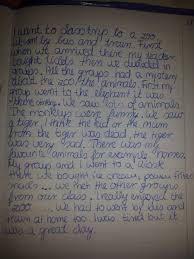 I want to class trip to a zoo
went by bus and train. First
when we arrived there my teacher
bought tickets then we divided in
groups. All the groups had a mystery
about the zoo, the animals. First my
group went to the elephant it was
We saw lots of animals.
The monkeys were funny. We saw
a tiger, I think the kid or the mum
from the tiger was dead, the tiger
was very sad. There was my
favourite animals for example horses.
My group and I went to a kiosk
there we bought ice cream, pommes frites
and ... we met the other groups
from our class. I really enjoyed the
zoo ... we had to went by bus and
train at home too. I was tired but it
was a great day.